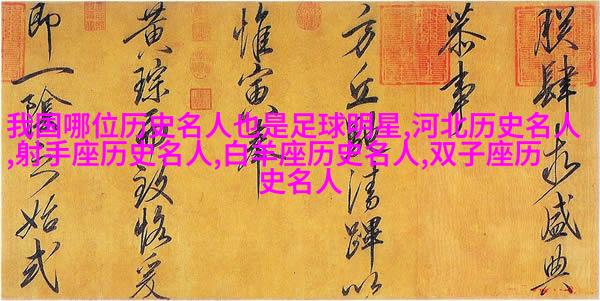 我国哪位历史名人也是足球明星,河北历史名人
,射手座历史名人,白羊座历史名人,双子座历
史名人
朕肆求盛典
恭事
方丘清蹕以
惟寅
黄琮而致恪爰
即一陰之始式